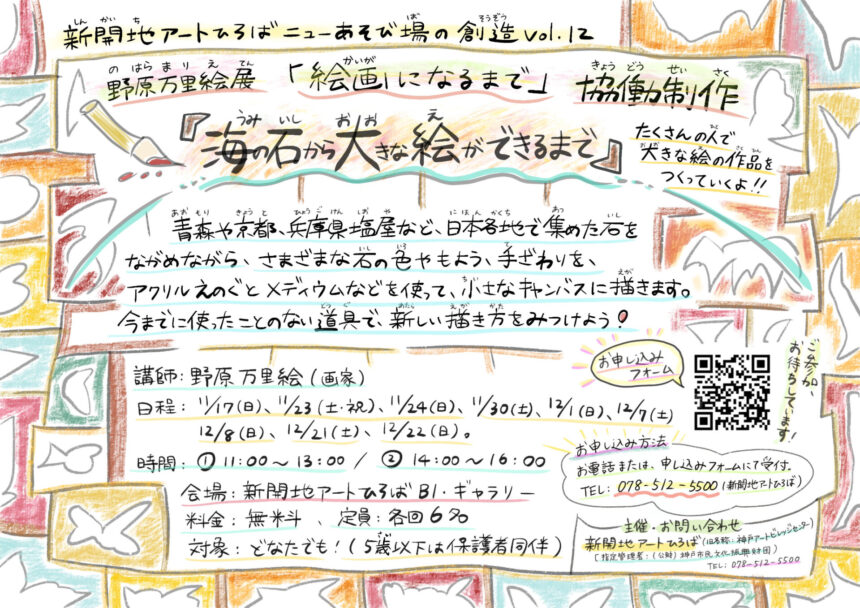 新開地アートひろばニューあそび場の創造 vol.12
野原万里絵展「絵画になるまで」協働制作
『海の石から大きな絵ができるまで』
たくさんの人で
大きな絵の作品を
つくっていくよ!!
青森や京都、兵庫県塩屋など、日本各地で集めた石を
ながめながら、さまざまな石の色やもよう、手ざわりを、
アクリルえのぐとメディウムなどを使って、小さなキャンバスに描きます。
今までに使ったことのない道具で、新しい描き方をみつけよう!
講師:野原万里絵(画家)
日程:11/17(日)、11/23(土・祝)、11/24(日)、11/30(土)、12/1(日)、12/7(土)
12/8(日)、12/21(土)、12/22(日)。
時間:① 11:00~13:00 / ② 14:00~16:00
会場:新開地アートひろばB1・ギャラリー
料金:無料、定員:各回6名
対象:どなたでも!(5歳以下は保護者同伴)
お申し込み
フォーム
ご参加、
お待ちしています!
お申し込み方法
お電話または、申し込みフォームにて受付。
TEL:078-512-5500(新開地アートひろば)
主催・お問い合わせ
新開地アートひろば(旧名称:神戸アートビレッジセンター)
[指定管理者:(公財)神戸市民文化振興財団]
TEL:078-512-5500